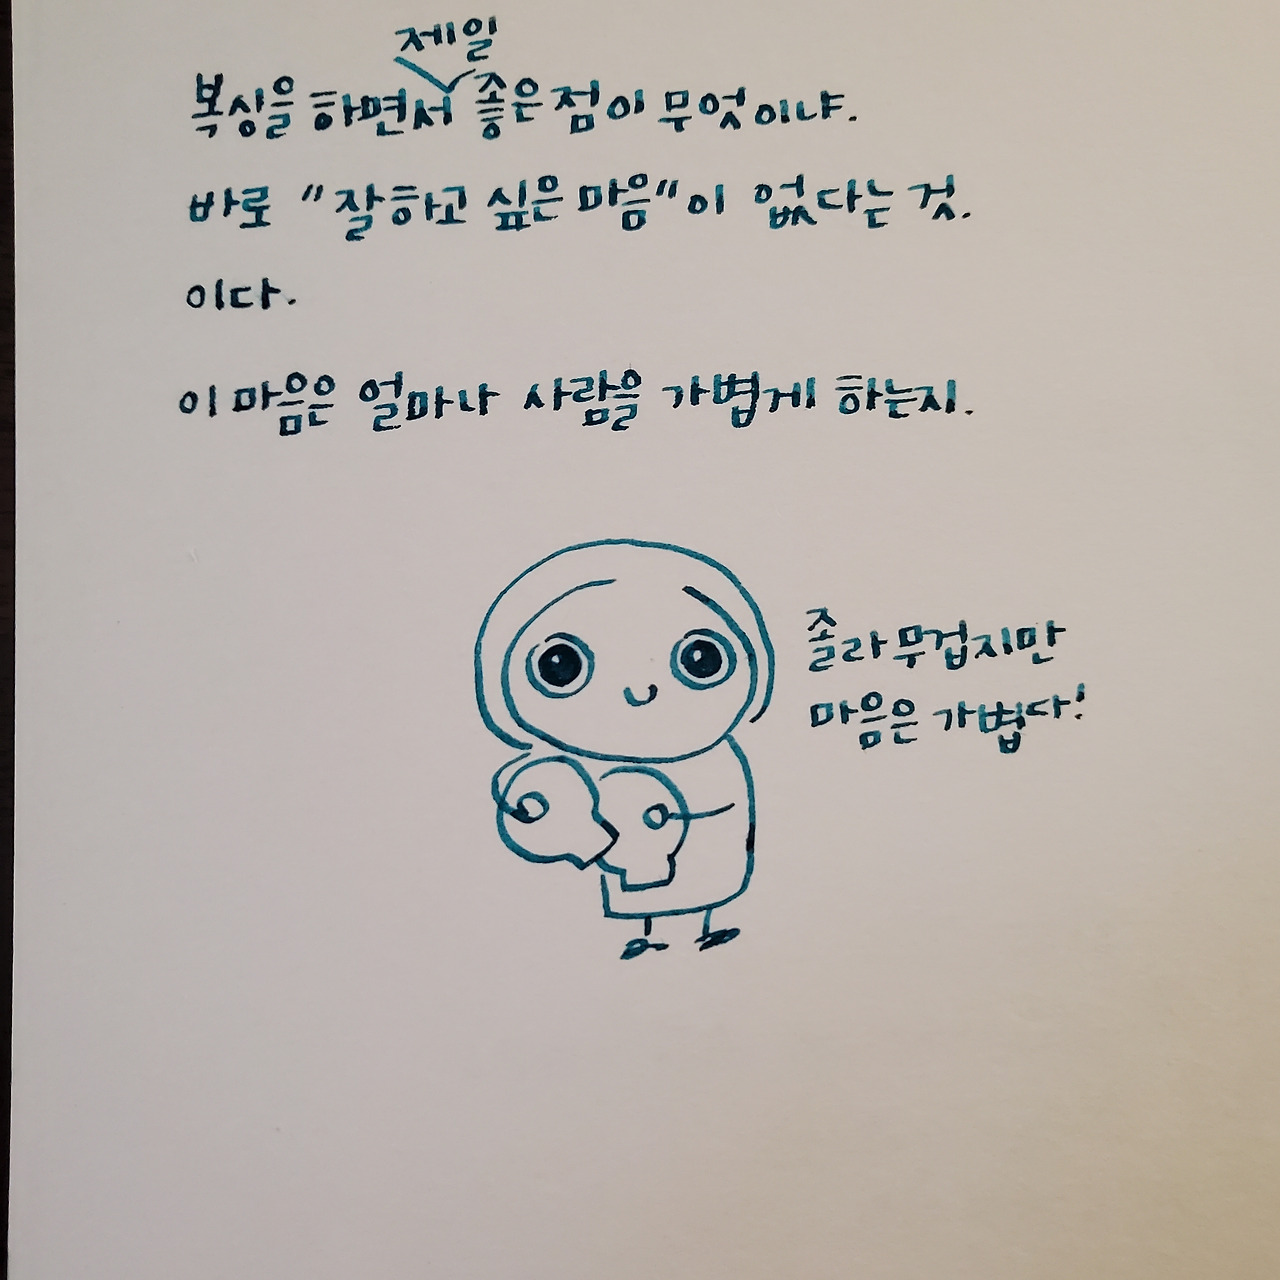 제일
복싱을 하면서 좋은 점이 무엇이냐.
바로 "잘하고 싶은 마음"이 없다는 것.
이다.
이 마음은 얼마나 사람을 가볍게 하는지.
졸라 무겁지만
마음은 가볍다!